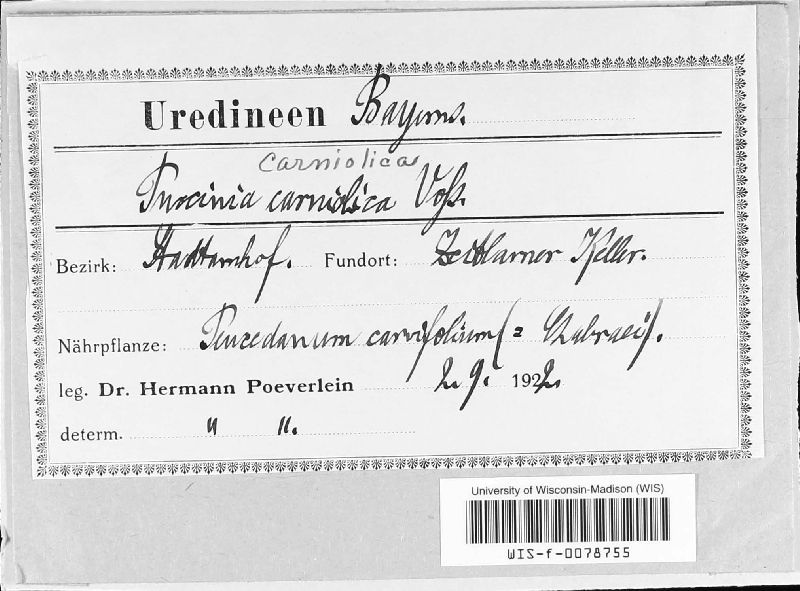 Uredineen Bayerns.
carniolica
Puccinia carniolica Voß.
Bezirk: Stadtamhof. Fundort: Zeitlarner Keller.
Nährpflanze: Peucedanum carvifolium (= Chabraei).
leg. Dr. Hermann Poeverlein 2. 9. 1922.
determ. " ".
University of Wisconsin-Madison (WIS)
WIS-f-0078755